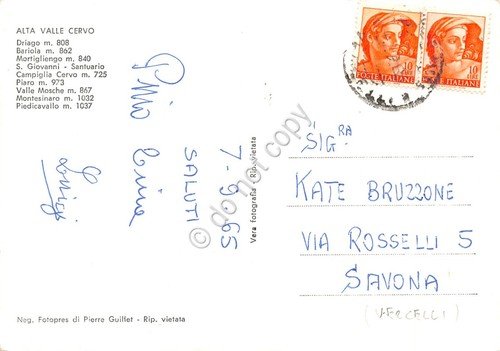 ALTA VALLE CERVO
Driago m. 808
Bariola m. 862
Mortigliengo m. 840
S. Giovanni - Santuario
Campiglia Cervo m. 725
Piaro m. 973
Valle Mosche m. 867
Montesinaro m. 1032
Piedicavallo m. 1037
7-9-65
SALUTI
Pino
Luigi
Neg. Fotopres di Pierre Guillet - Rip. vietata
Vera fotografia - Rip. vietata
do not copy
10
POSTE ITALIANE
10
POSTE ITALIANE
SIG.RA
KATE BRUZZONE
VIA ROSSELLI 5
SAVONA
(VERCELLI)